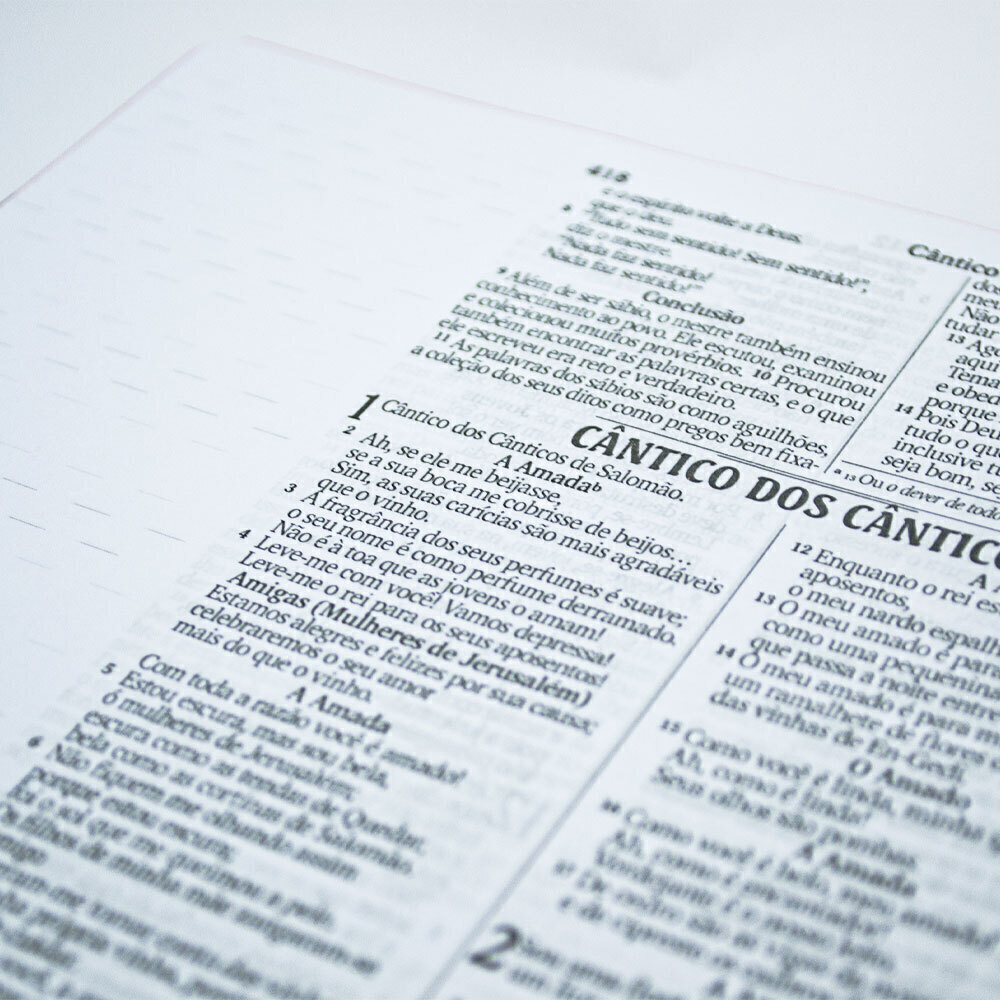 416
e o espírito volte a Deus,
que o deu.
8 "Tudo sem sentido! Sem sentido!",
diz o mestre.
"Nada faz sentido!
Nada faz sentido!"
Conclusão
9 Além de ser sábio, o mestre também ensinou
conhecimento ao povo. Ele escutou, examinou
e colecionou muitos provérbios. 10 Procurou
também encontrar as palavras certas, e o que
ele escreveu era reto e verdadeiro.
11 As palavras dos sábios são como aguilhões,
a coleção dos seus ditos como pregos bem fixa-
Cântico
dos
meu
Não
tudar
13 Ago
aqui
Tema
e obed
porque
14 Pois Deu
tudo o qu
inclusive tu
seja bom, se
a 13 Ou o dever de toda
CÂNTICO DOS CÂNTICO
1 Cântico dos Cânticos de Salomão.
A Amada b
2 Ah, se ele me beijasse,
se a sua boca me cobrisse de beijos...
Sim, as suas carícias são mais agradáveis
que o vinho.
3 A fragrância dos seus perfumes é suave;
o seu nome é como perfume derramado.
Não é à toa que as jovens o amam!
4 Leve-me com você! Vamos depressa!
Leve-me o rei para os seus aposentos!
Amigas (Mulheres de Jerusalém)
Estamos alegres e felizes por sua causa;
celebraremos o seu amor
mais do que o vinho.
A Amada
Com toda a razão você é amado!
5 Estou escura, mas sou bela,
ó mulheres de Jerusalém;
escura como as tendas de Quedar,
bela como as cortinas de Salomão.
6 Não fiquem me olhando assim
porque estou escura;
foi o sol que me queimou a pele.
Os filhos de minha mãe
12 Enquanto o rei es
aposentos,
o meu nardo espalh
13 O meu amado é para
como uma pequenina
que passa a noite entre
14 O meu amado é para m
um ramalhete de flores d
das vinhas de En-Gedi.
O Amado
15 Como você é linda, minha
Ah, como é linda!
Seus olhos são pombas.
A Amada
16 Como você é belo, meu amado
Ah, como é
2